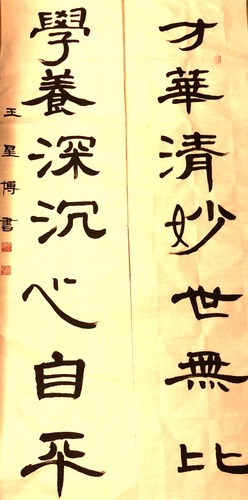 才華清妙世無比
學養深沉心自平
王星博書